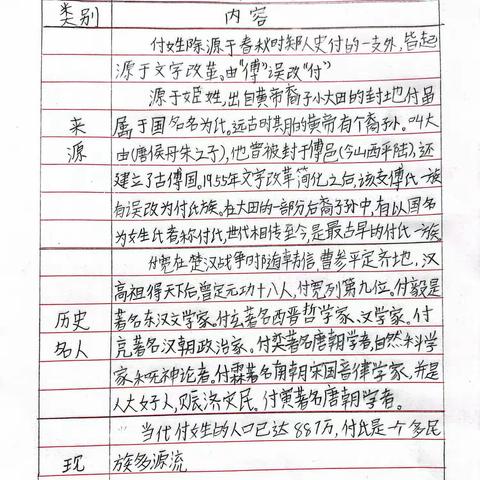 类别 内容
付姓除源于春秋时郑人史付的一支外,皆起
源于文字改革。由“傅”误改“付”
源于姬姓,出自黄帝裔子小大田的封地付邑
来 属于国名名为氏。远古时其月的黄帝有个裔孙。叫大
源 由(唐侯丹朱之子),他曾被封于傅邑(今山西平陆),还
建立了古傅国,1955年文字改革简化之后,该支傅氏一族
有误改为付氏族。在大田的一部分后裔子孙中,有以国名
为女生氏者,称付氏,世代相传至今,是最占早的付氏一族。
付宽在楚汉战争时随韩信,曹参平定齐地,汉
高祖得天下后,曾定元功十八人,付宽列第九位。付毅是
历史 著名东汉文学家。付玄著名西晋哲学家、文学家。付
名人 亮著名汉朝政治家。付奕著名唐朝学者,自然科学
家无神论者。付霖著名南朝宋国音律学家,并是
人大好人,赈济文民。付黄著名唐朝学者。
当代付姓的人口已达887万,付氏是一个多民
现 族多源流